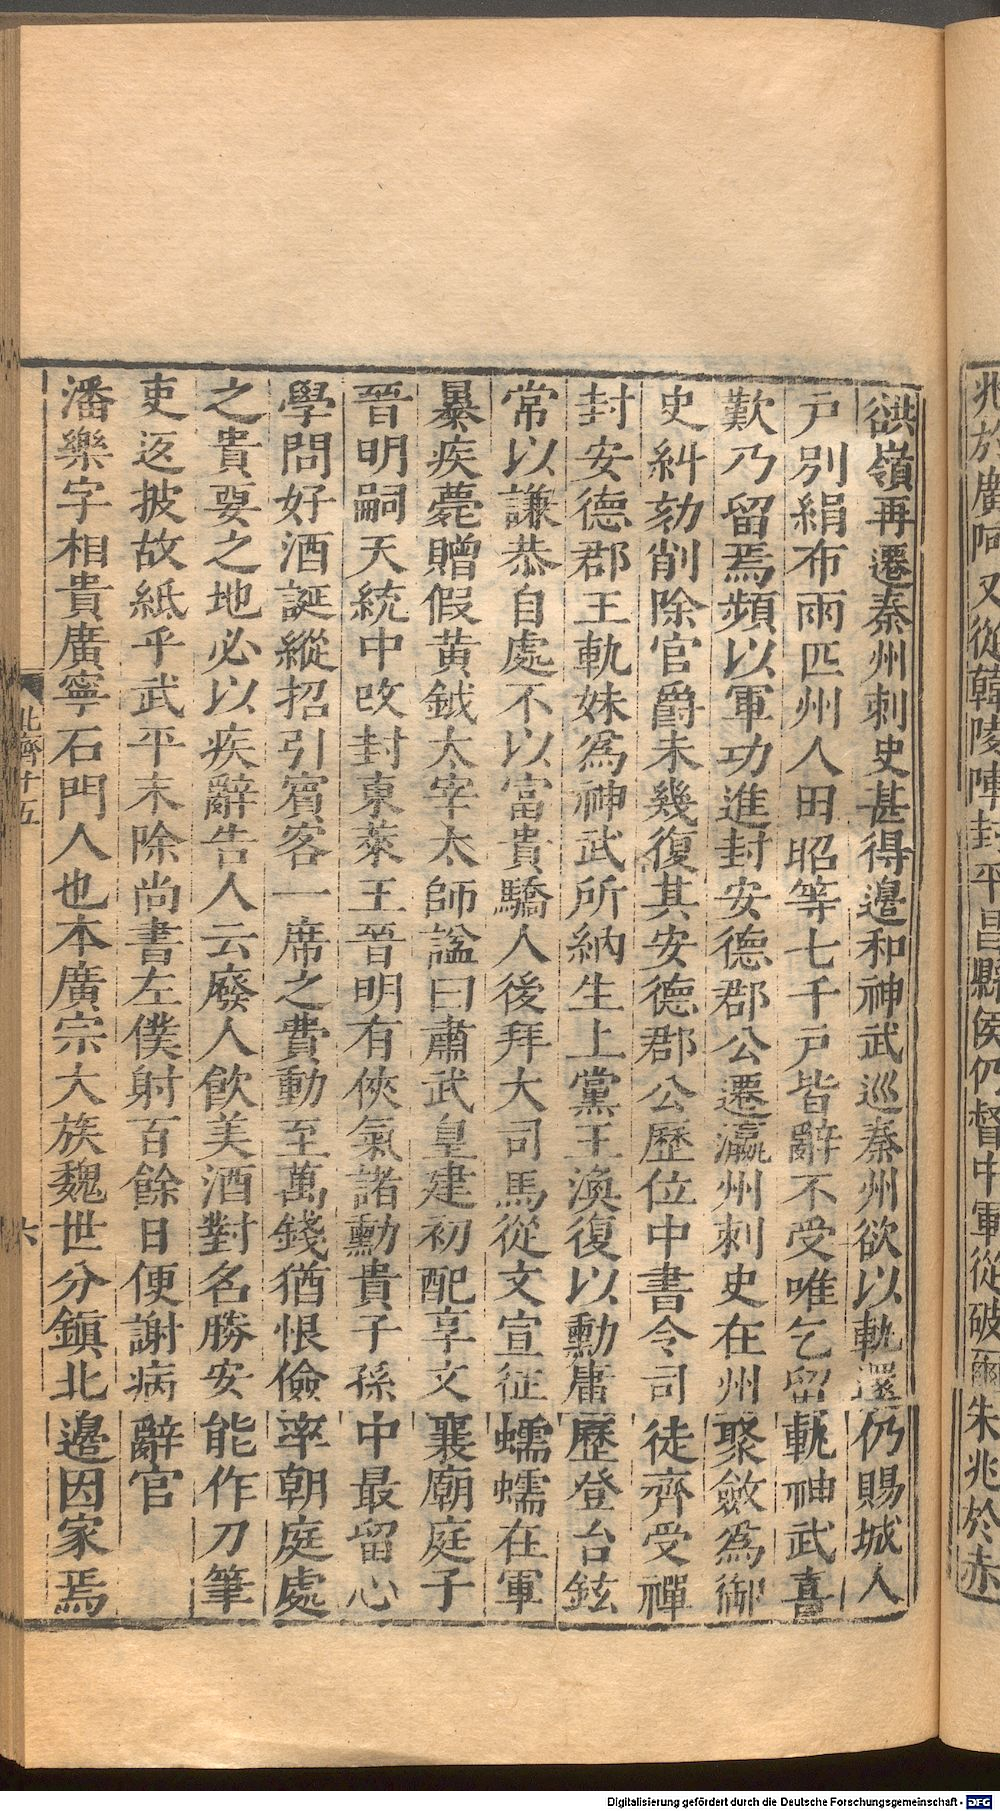 兆於廣阿又從韓陵陣封平昌縣侯仍督中軍從破爾朱兆於赤
谼嶺再遷秦州刺史甚得邊和神武巡秦州欲以軌還仍賜城人
戶別絹布兩匹州人田昭等七千戶皆辭不受唯乞留軌神武嘉
歎乃留焉頻以軍功進封安德郡公遷瀛州刺史在州聚斂為御
史糾劾削除官爵未幾復其安德郡公歷位中書令司徒齊受禪
封安德郡王軌妹為神武所納生上黨王渙復以勳庸歷登台鉉
常以謙恭自處不以富貴驕人後拜大司馬從文宣征蠕蠕在軍
暴疾薨贈假黄鉞太宰太師諡曰肅武皇建初配享文襄廟庭子
晉明嗣天統中改封東萊王晉明有俠氣諸勳貴子孫中最留心
學問好酒誕縱招引賓客一席之費動至萬錢猶恨儉率朝庭處
之貴要之地必以疾辭告人云廢人飲美酒對名勝安能作刀筆
吏返披故紙乎武平末除尚書左僕射百餘日便謝病辭官
潘樂字相貴廣寧石門人也本廣宗大族魏世分鎮北邊因家焉
北齊十五
六
Digitalisierung gefördert durch die Deutsche Forschungsgemeinschaft - DFG